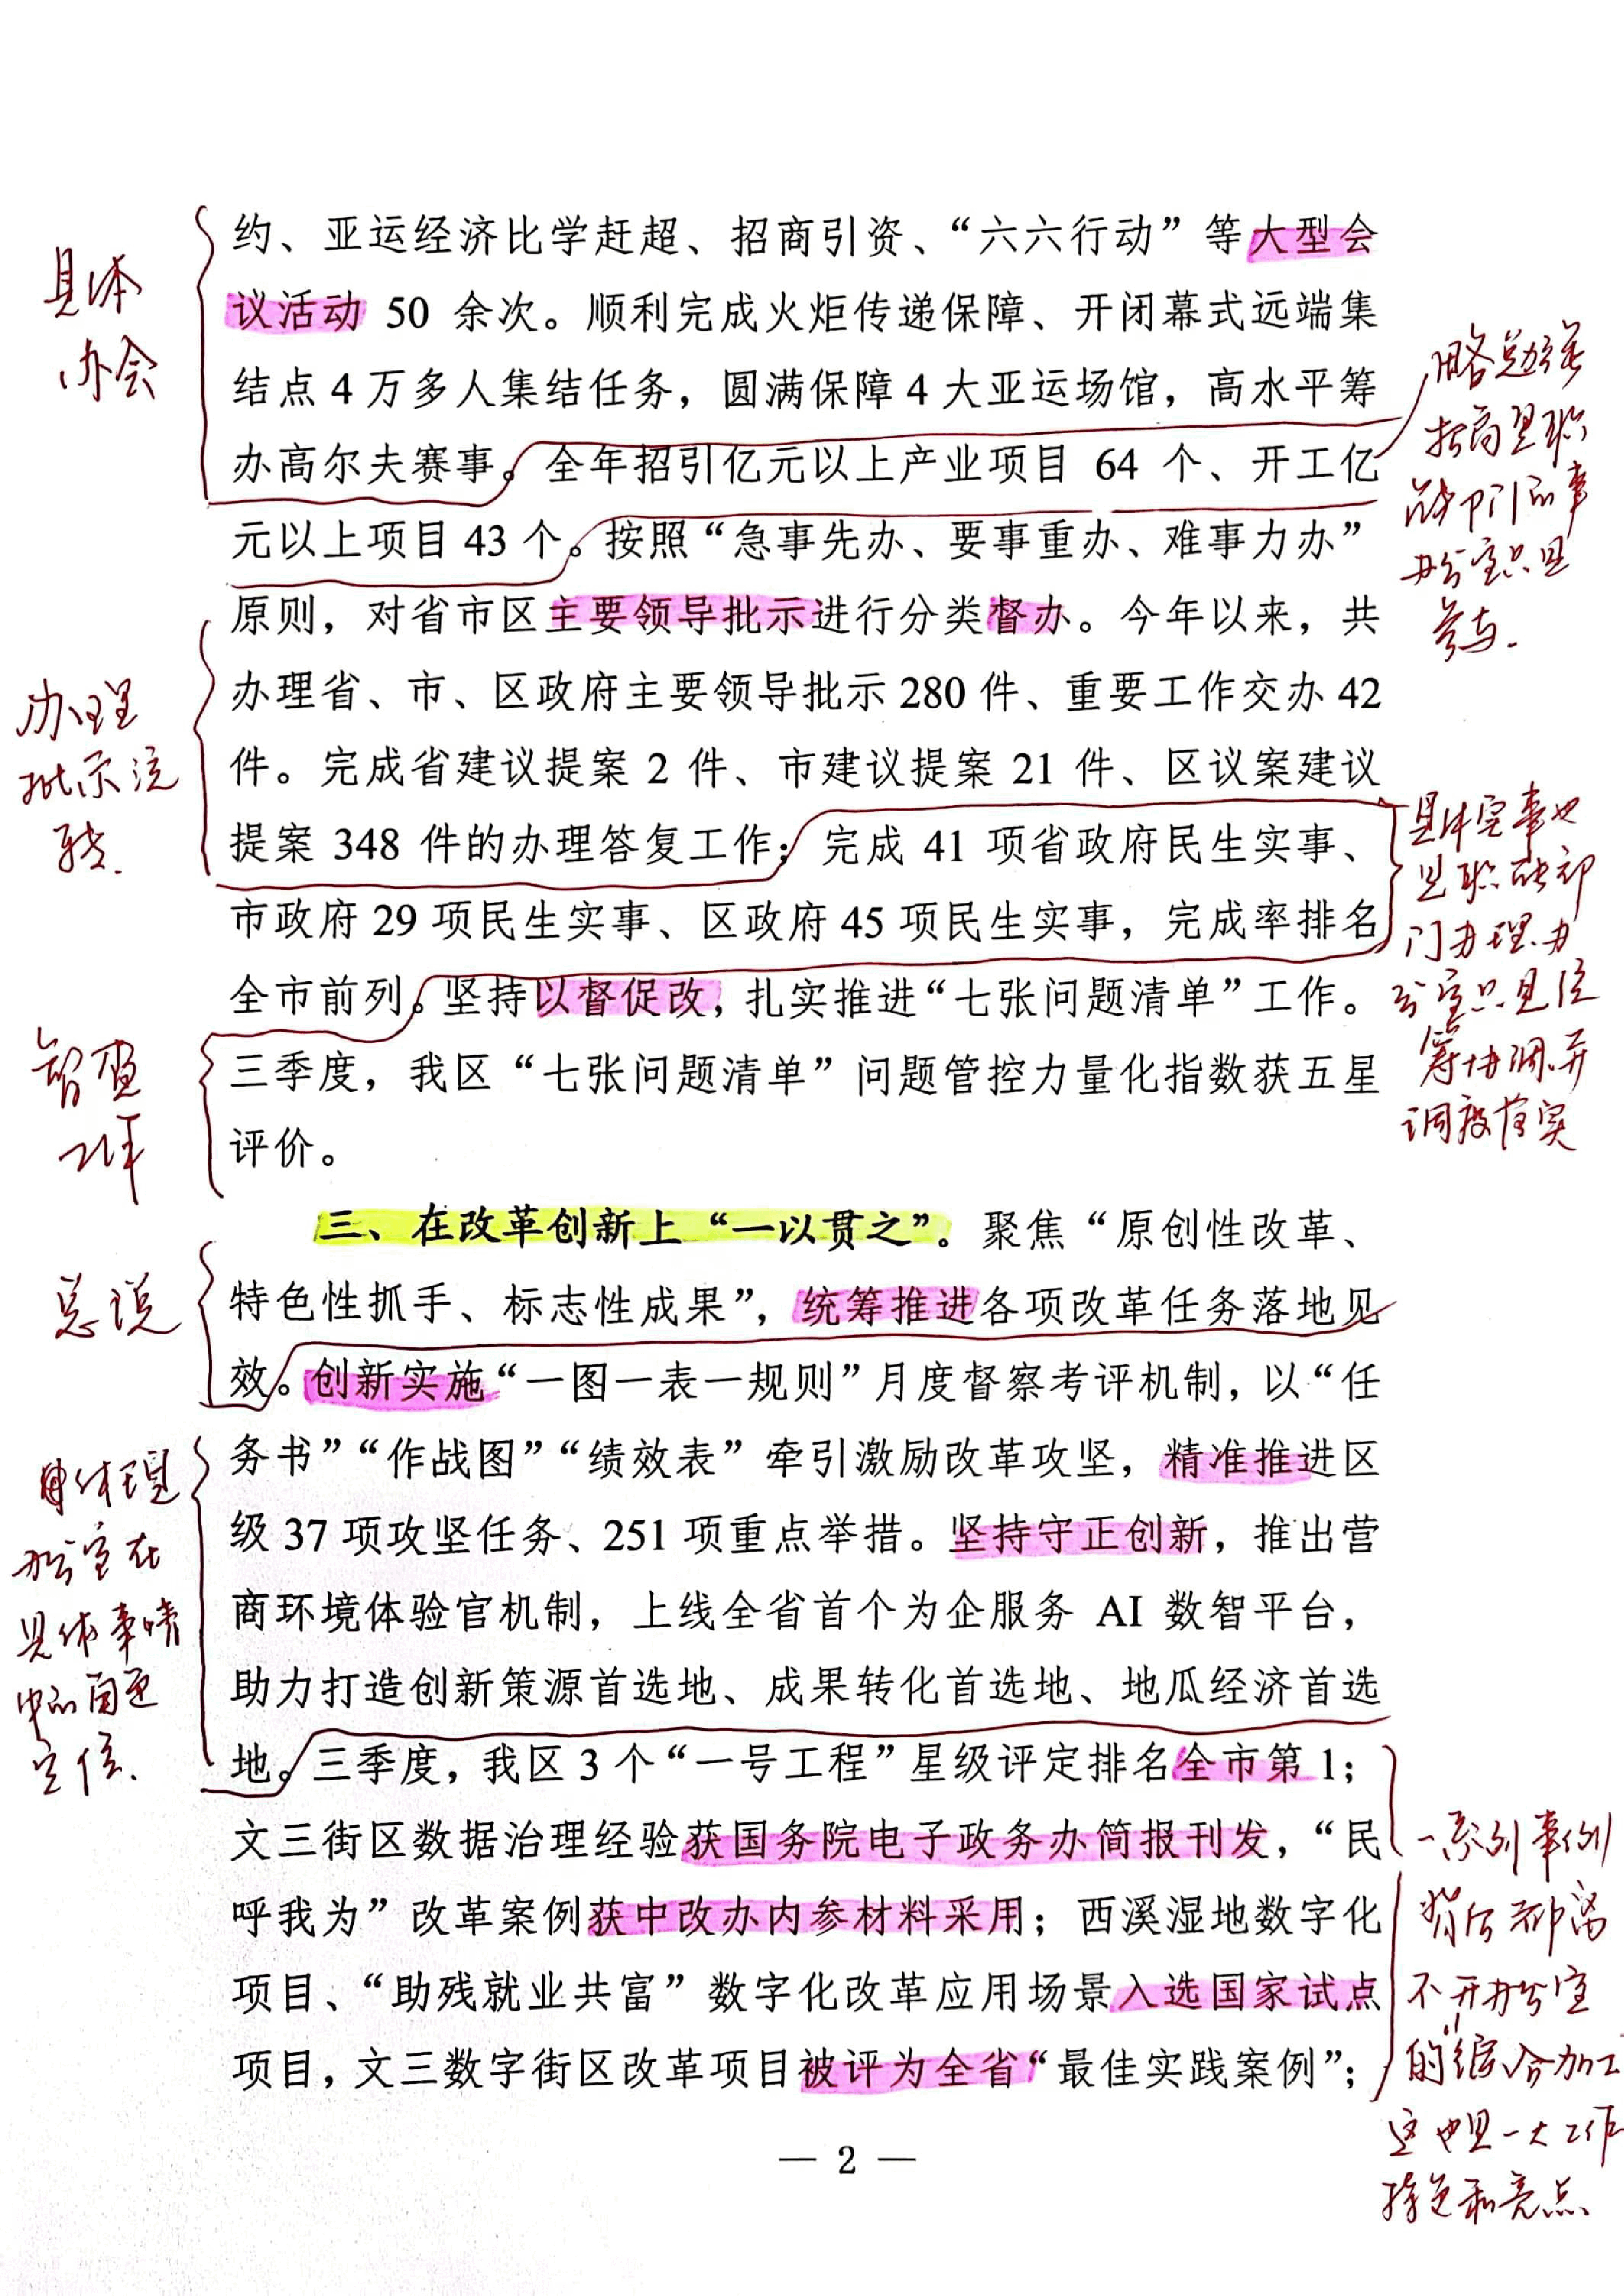 约、亚运经济比学赶超、招商引资、“六六行动”等大型会
议活动 50 余次。顺利完成火炬传递保障、开闭幕式远端集
结点 4 万多人集结任务，圆满保障 4 大亚运场馆，高水平筹
办高尔夫赛事。全年招引亿元以上产业项目 64 个、开工亿
元以上项目 43 个。按照“急事先办、要事重办、难事力办”
原则，对省市区主要领导批示进行分类督办。今年以来，共
办理省、市、区政府主要领导批示 280 件、重要工作交办 42
件。完成省建议提案 2 件、市建议提案 21 件、区议案建议
提案 348 件的办理答复工作；完成 41 项省政府民生实事、
市政府 29 项民生实事、区政府 45 项民生实事，完成率排名
全市前列。坚持以督促改，扎实推进“七张问题清单”工作。
三季度，我区“七张问题清单”问题管控力量化指数获五星
评价。
三、在改革创新上“一以贯之”。聚焦“原创性改革、
特色性抓手、标志性成果”，统筹推进各项改革任务落地见
效。创新实施“一图一表一规则”月度督察考评机制，以“任
务书”“作战图”“绩效表”牵引激励改革攻坚，精准推进区
级 37 项攻坚任务、251 项重点举措。坚持守正创新，推出营
商环境体验官机制，上线全省首个为企服务 AI 数智平台，
助力打造创新策源首选地、成果转化首选地、地瓜经济首选
地。三季度，我区 3 个“一号工程”星级评定排名全市第 1；
文三街区数据治理经验获国务院电子政务办简报刊发，“民
呼我为”改革案例获中改办内参材料采用；西溪湿地数字化
项目、“助残就业共富”数字化改革应用场景入选国家试点
项目，文三数字街区改革项目被评为全省“最佳实践案例”；
— 2 —
具体
办会
办理
批示流
转.
督查
工作
总说
具体到
办公室在
具体事情
中的角色
定位.
招商是职
能部门的事
办公室只是
参与.
具体实事也
是职能部
门办理.办
公室只是统
筹协调.并
调度落实
一系列事例
背后都离
不开办公室
的“综合加工”
这也是一大工作
特色和亮点